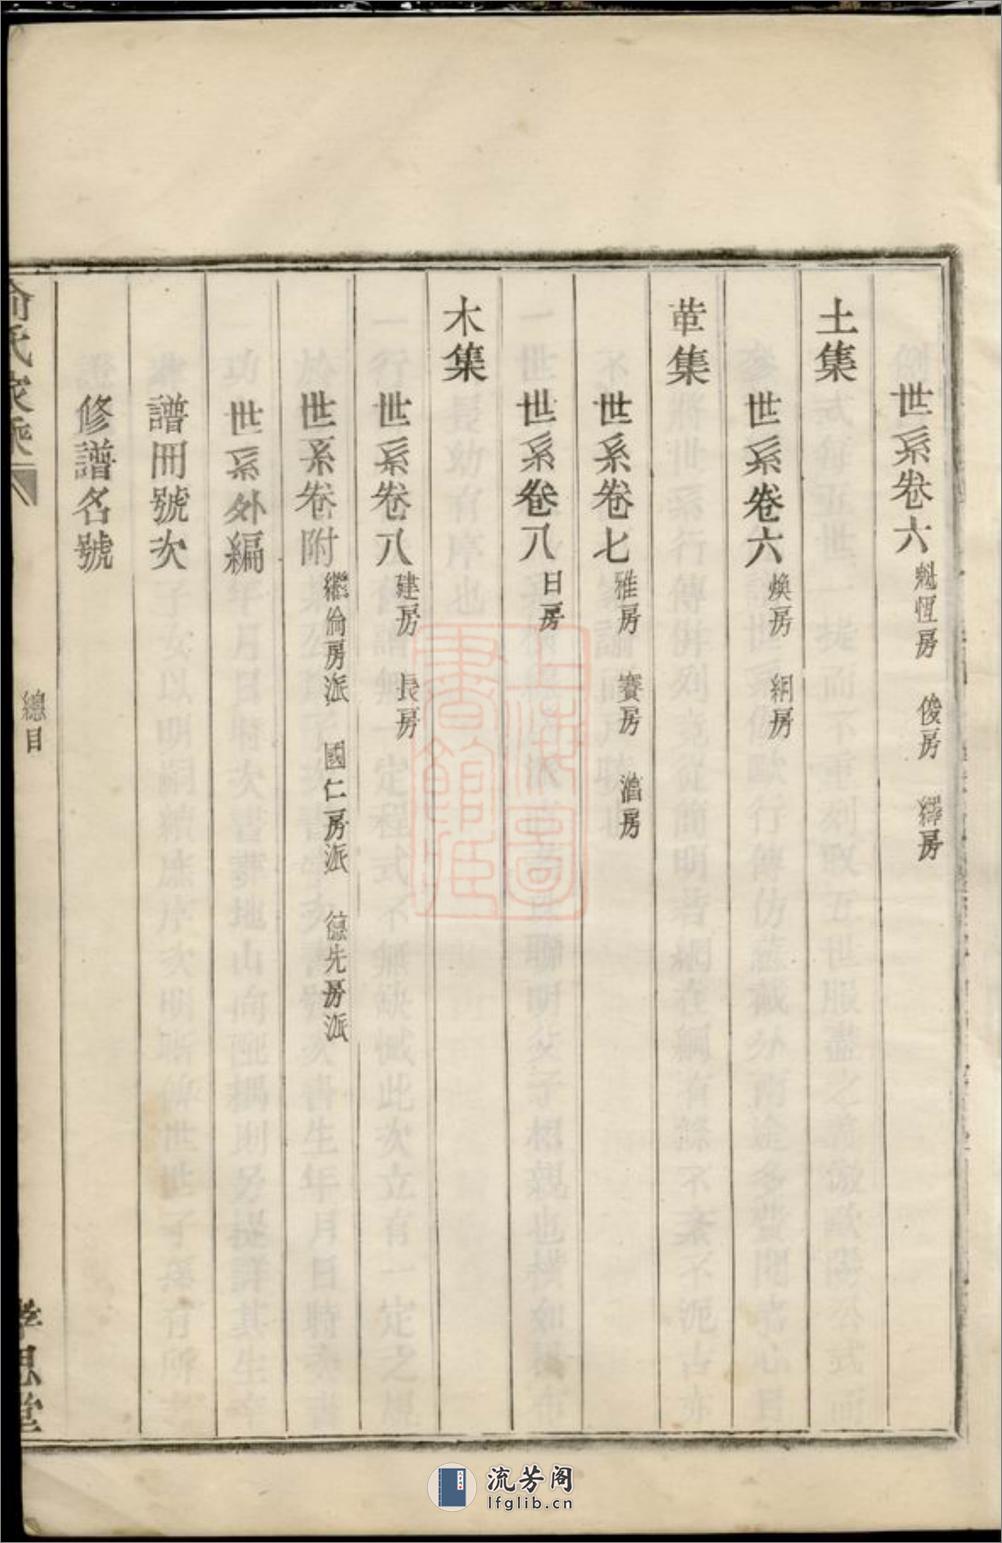 世系卷六 魁恆房 俊房 繹房
土集
世系卷六 煥房 絅房
革集
世系卷七 雅房 賽房 澑房
世系卷八 日房
木集
世系卷八 建房 長房
世系卷附 繼倫房派 國仁房派 德先房派
世系外編
譜冊號次
修譜名號
俞氏家乘 總目 孝思堂
流芳阁
lfglib.cn